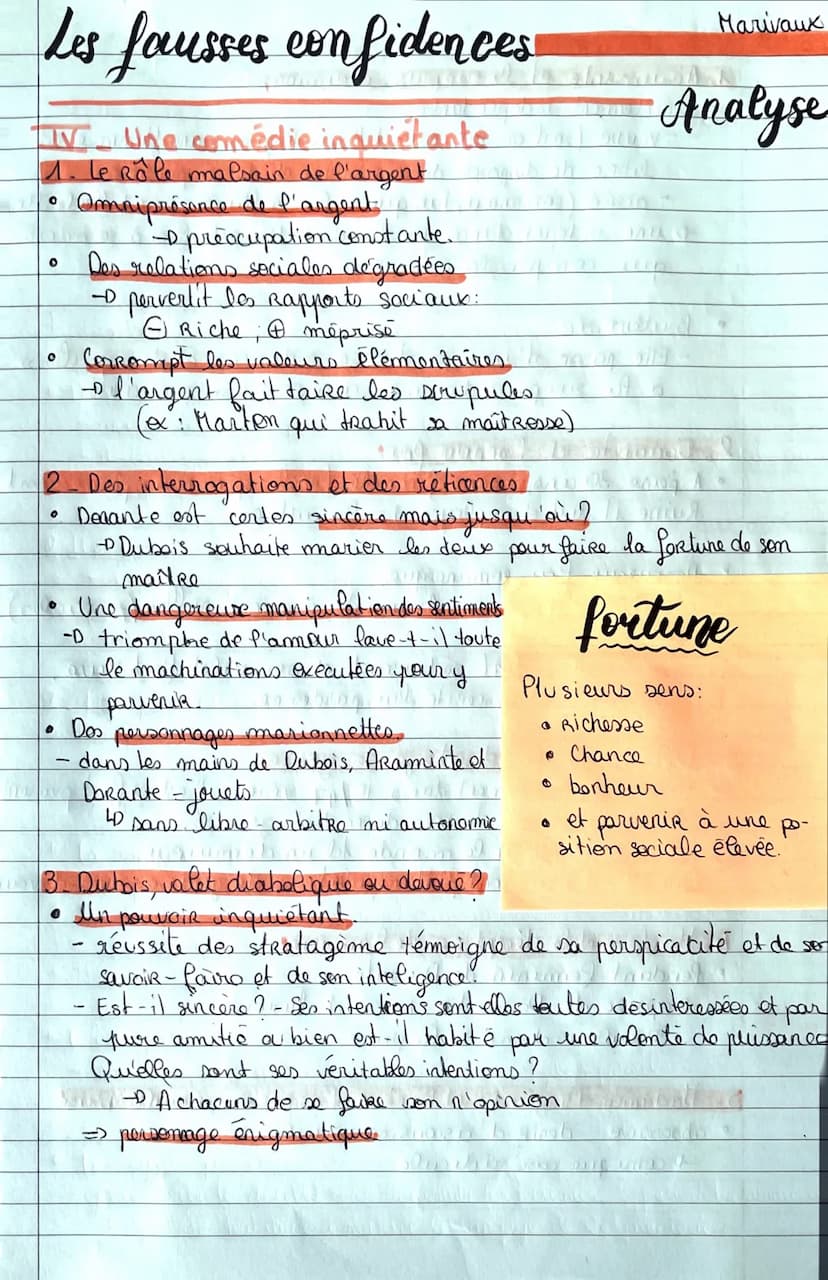 Les fausses confidences
Marivaux
Analyse
IV - Une comédie inquiétante
1. Le Rôle malsain de l'argent
• Omniprésence de l'argent
→ préoccupation constante.
• Des relations sociales dégradées
→ pervertit les Rapports sociaux :
⊖ Riche ; ⊕ méprisé
• Corrompt les valeurs élémentaires
→ l'argent fait taire les scrupules
(ex : Marton qui trahit sa maîtresse)
2 - Des interrogations et des réticences
• Dorante est certes sincère mais jusqu'où ?
→ Dubois souhaite marier les deux pour faire la fortune de son
maître
• Une dangereuse manipulation des sentiments
→ triomphe de l'amour lave-t-il toute
le machinations executées pour y
parvenir.
• Des personnages marionnettes
- dans les mains de Dubois, Araminte et
Dorante = jouets
↳ sans libre-arbitre ni autonomie
fortune
Plusieurs sens :
• Richesse
• Chance
• bonheur
• et parvenir à une po-
sition sociale élevée.
3 - Dubois, valet diabolique ou dévoué ?
• Un pouvoir inquiétant.
- réussite des stratagème témoigne de sa perspicatité et de son
savoir-faire et de son inteligence.
- Est-il sincère ? - Ses intentions sont elles toutes désinteressées et par
pure amitié ou bien est-il habité par une volonté de puissance
Quelles sont ses véritables intentions ?
→ A chacuns de se faire son n'opinion
⇒ personnage énigmatique.